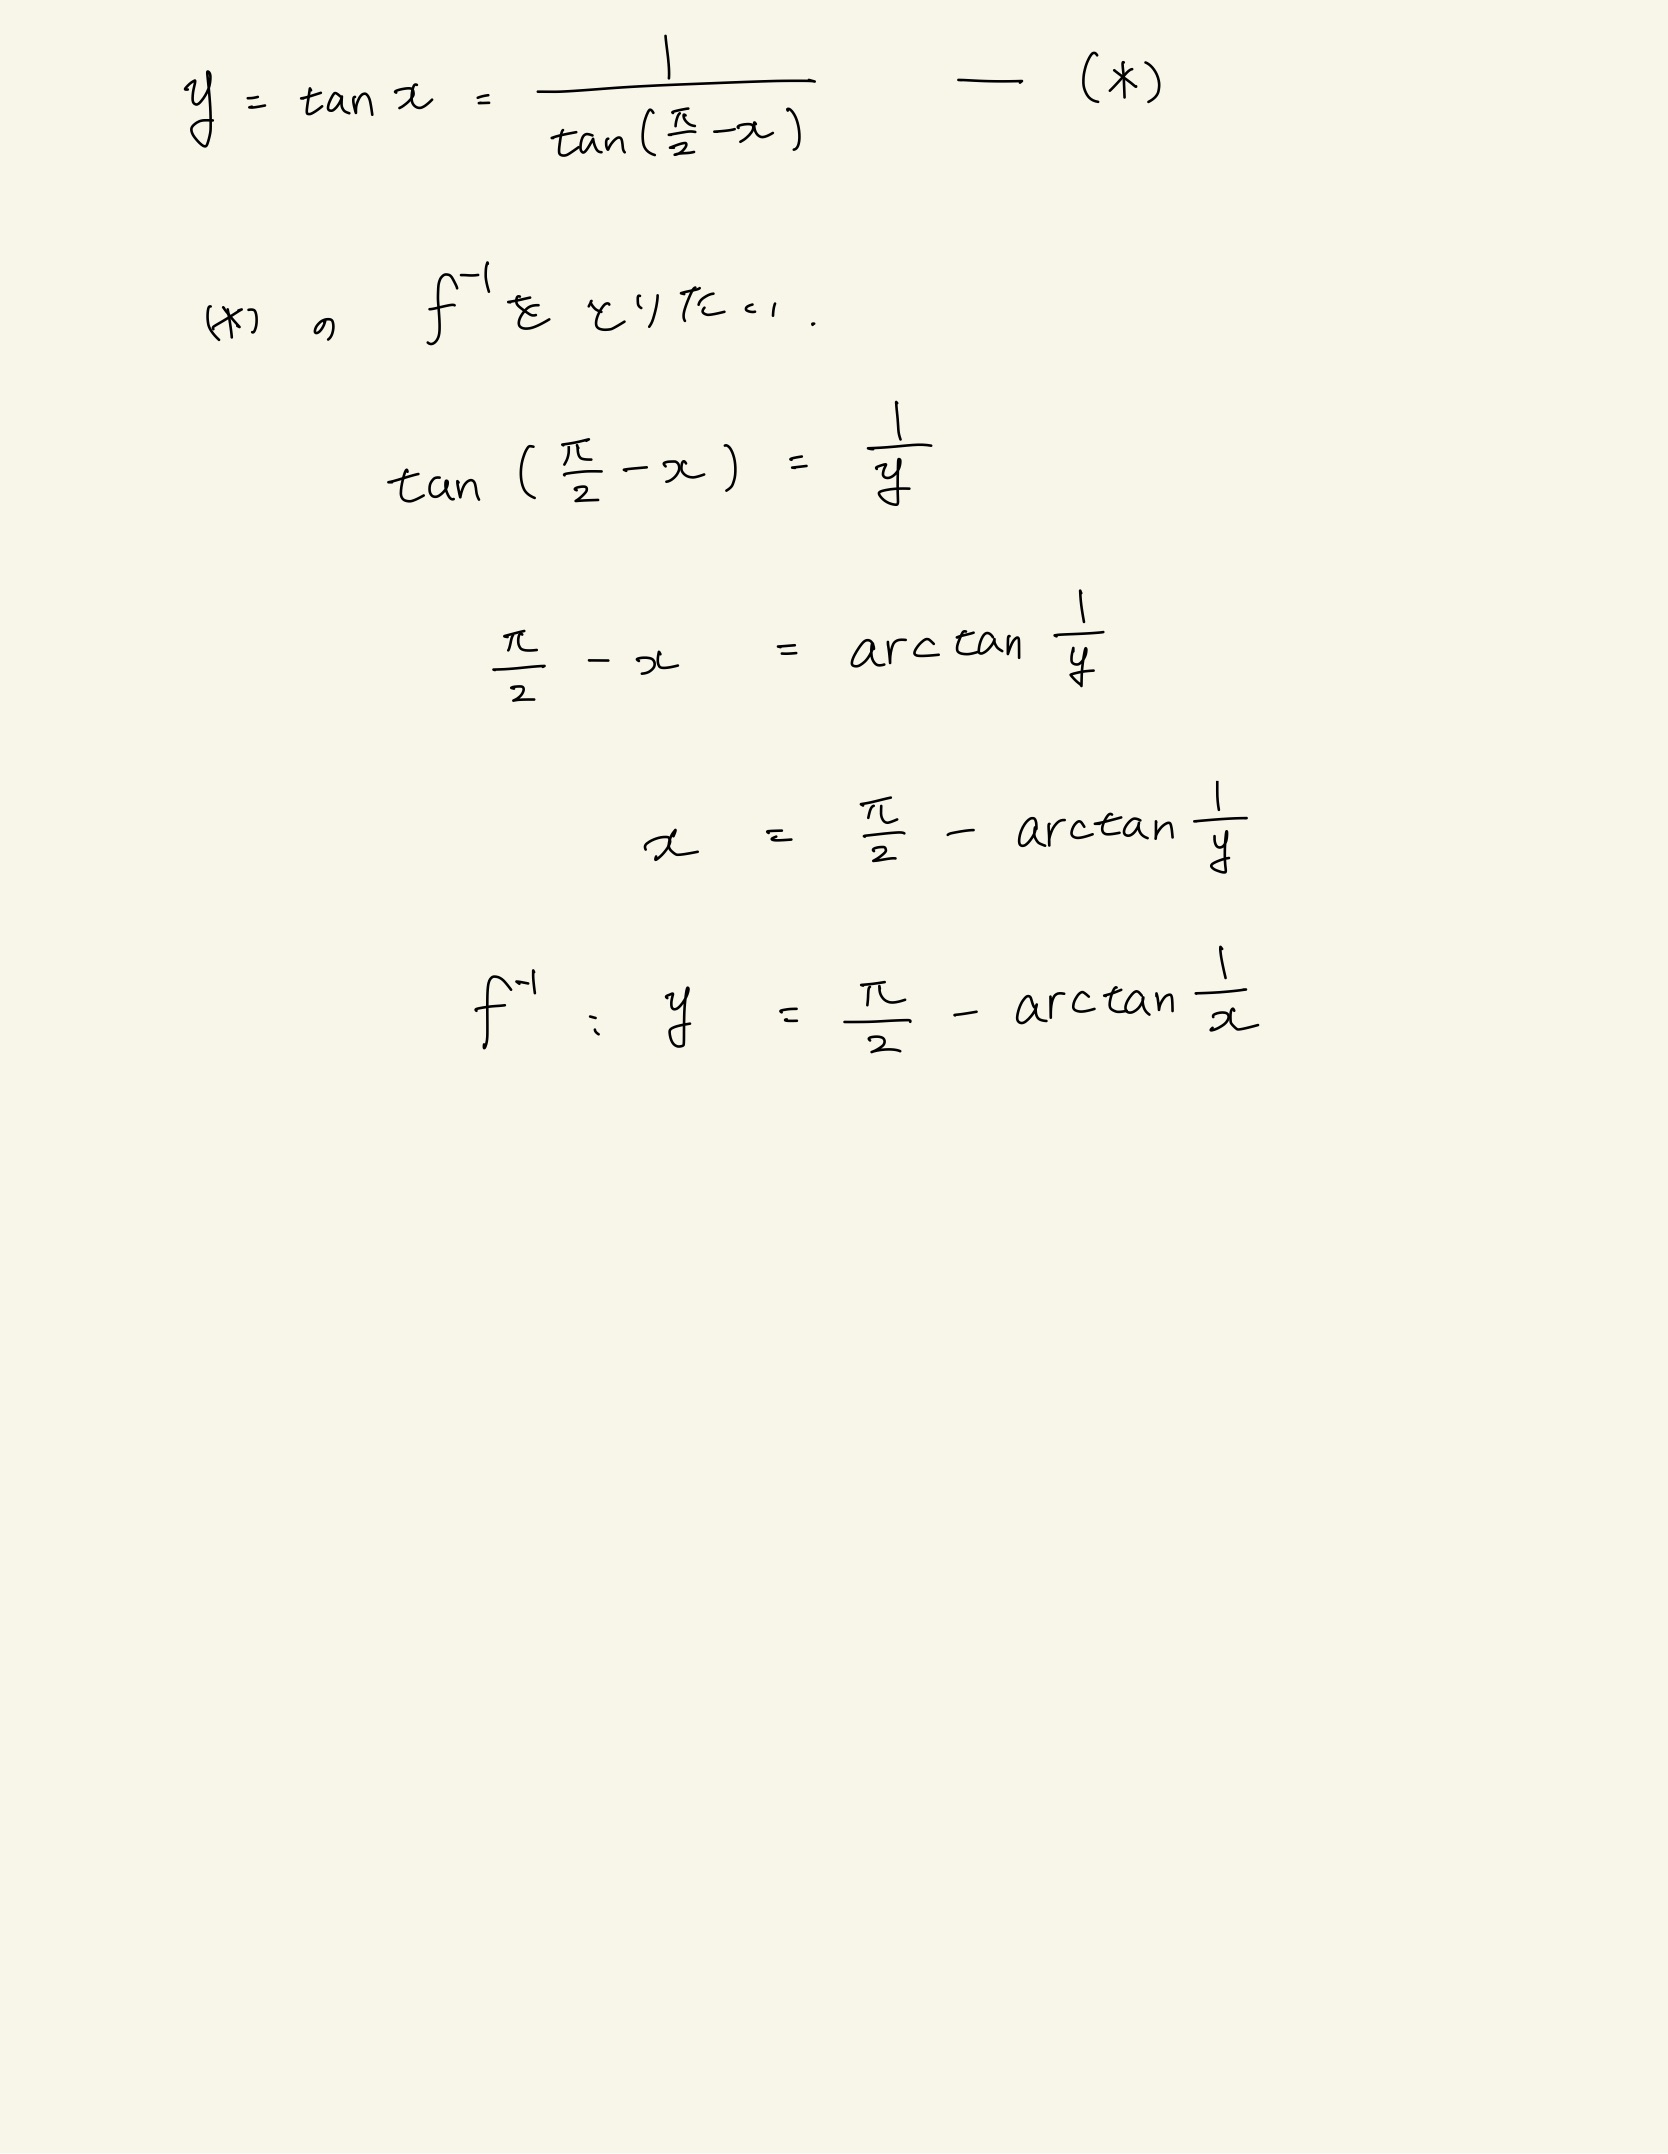 y = tan x = 1/tan(π/2 - x) — (*)
(*) の f⁻¹ をとりたい.
tan (π/2 - x) = 1/y
π/2 - x = arctan 1/y
x = π/2 - arctan 1/y
f⁻¹ : y = π/2 - arctan 1/x